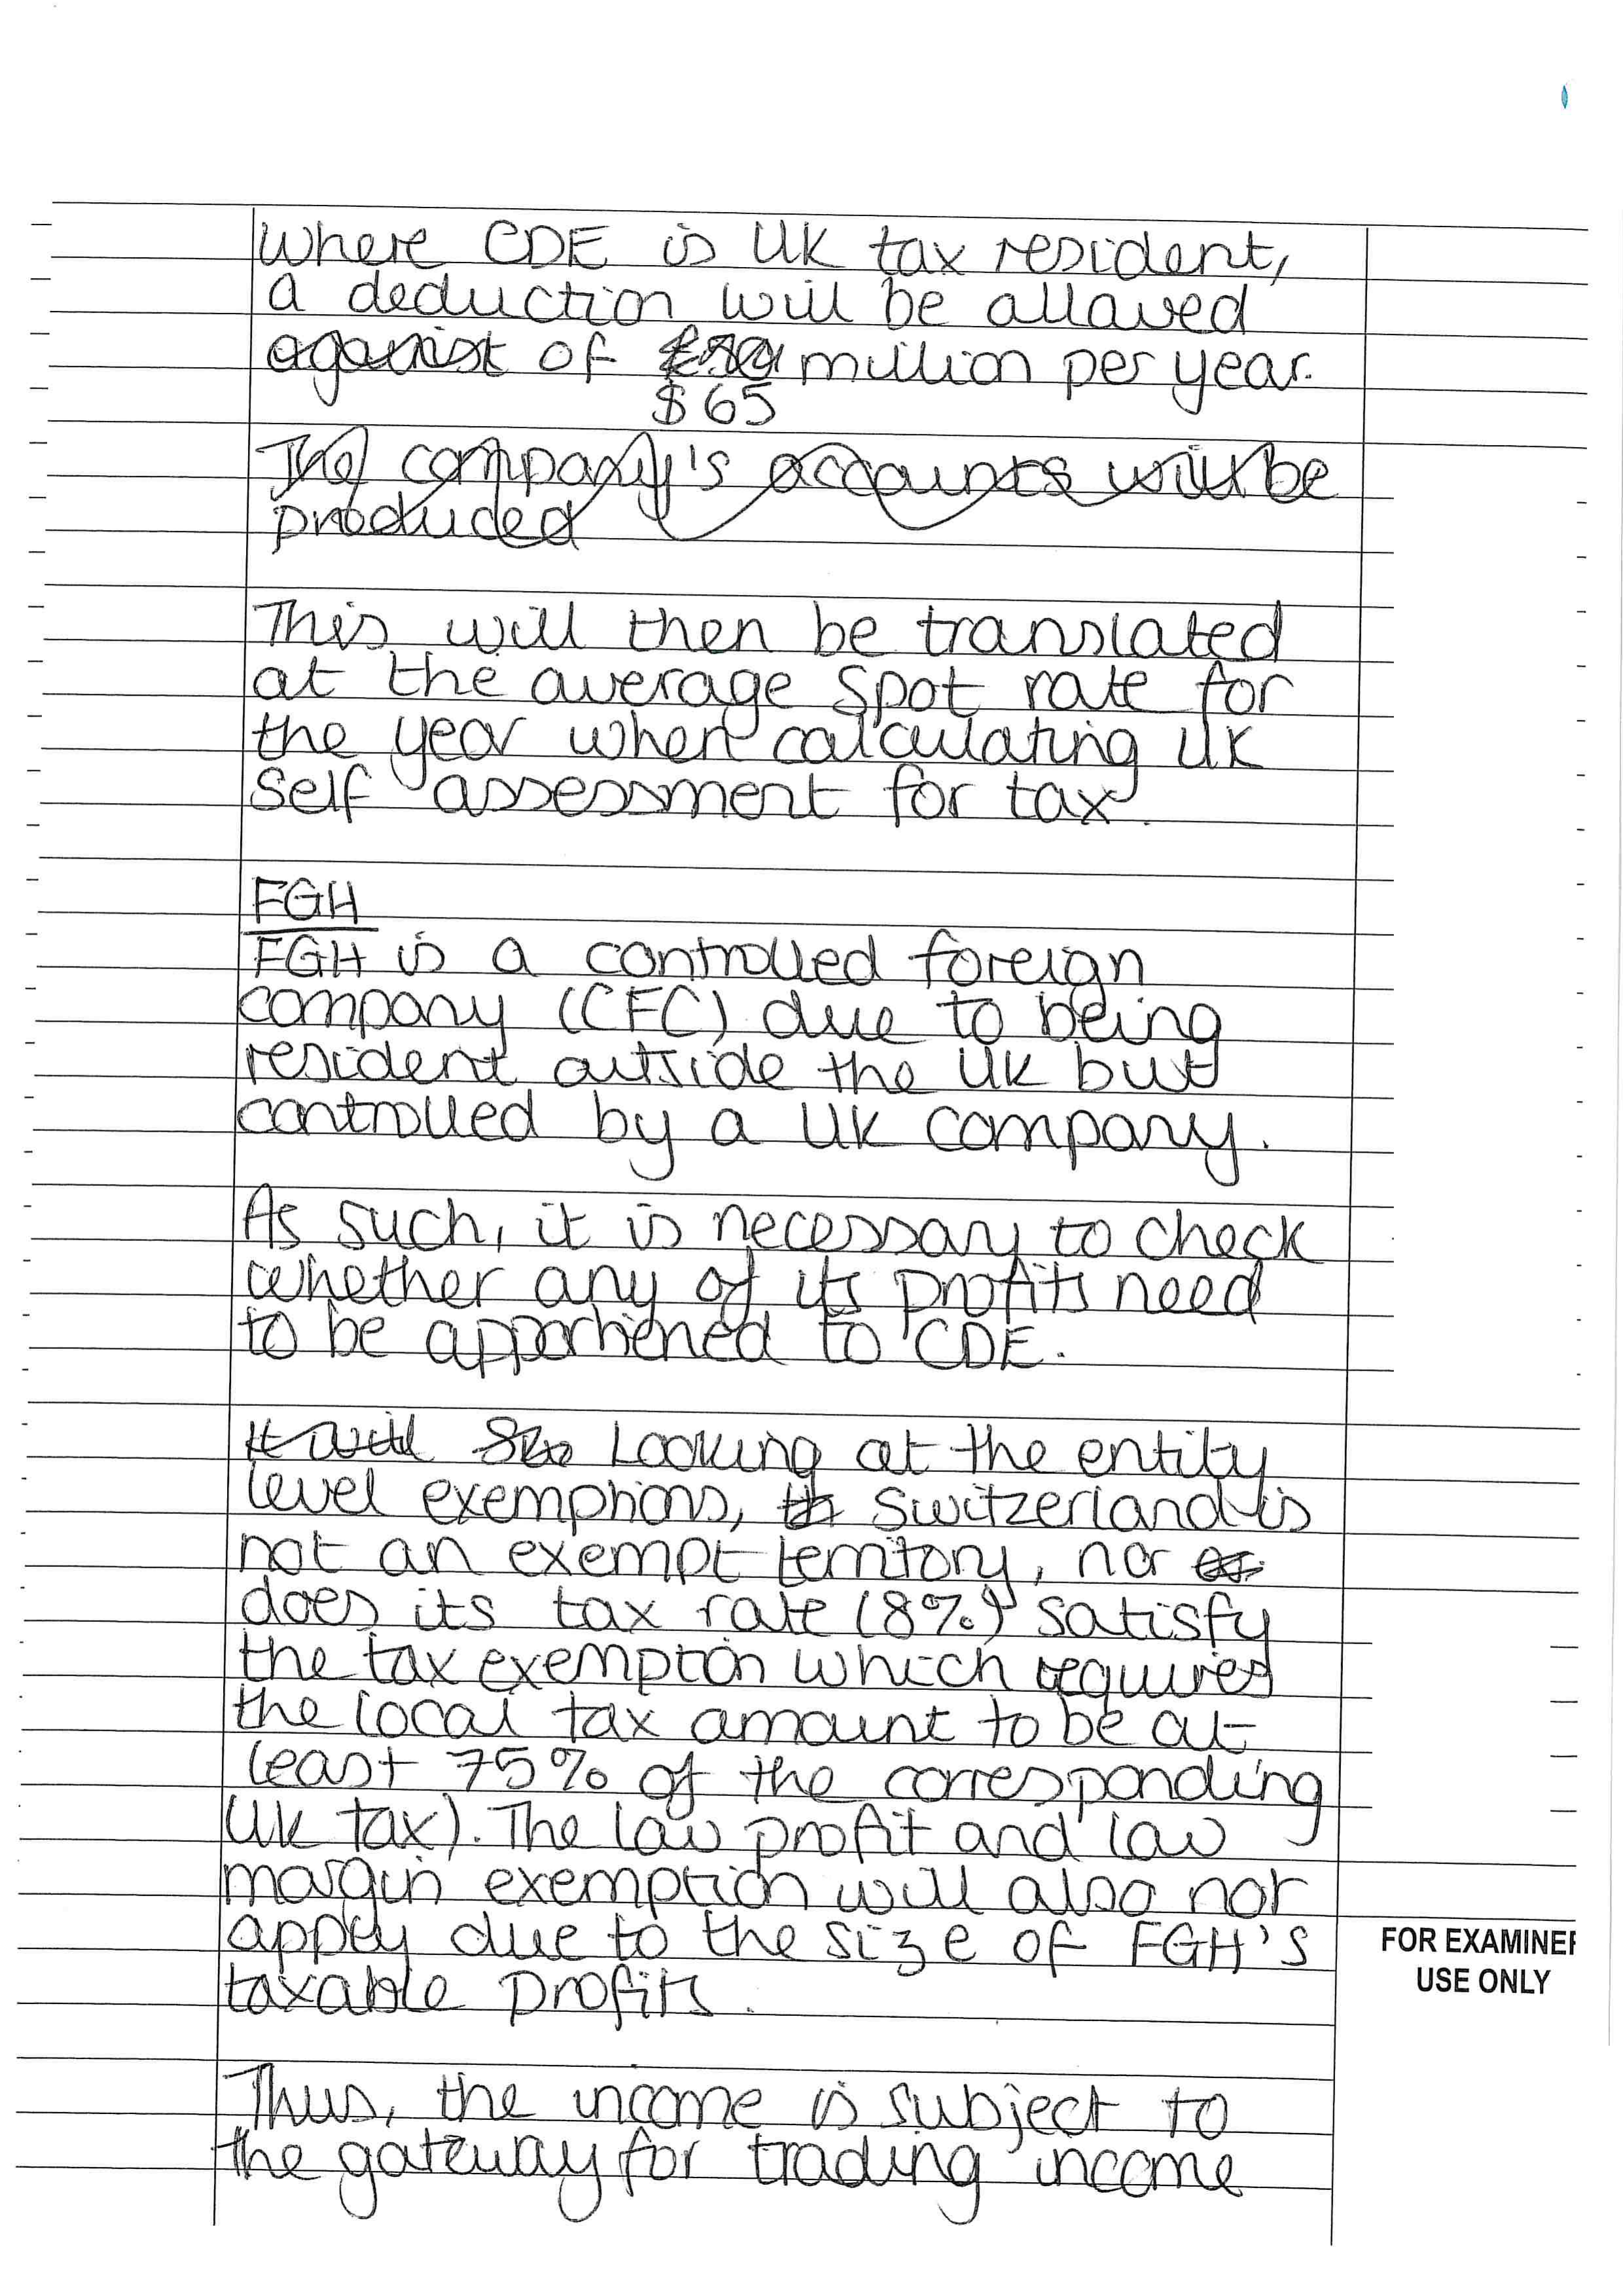 Where CDE is UK tax resident,
a deduction will be allowed
against of million per year.
$65
The company's accounts will be
produced
This will then be translated
at the average spot rate for
the year when calculating UK
self assessment for tax.
FGH
FGH is a controlled foreign
company (CFC) due to being
resident outside the UK but
controlled by a UK company.
As such, it is necessary to check
whether any of its profits need
to be apportioned to CDE.
It will Looking at the entity
level exemptions, th Switzerland is
not an exempt territory, nor
does its tax rate (8%) satisfy
the tax exemption which requires
the local tax amount to be at
least 75% of the corresponding
UK tax). The low profit and low
margin exemption will also not
apply due to the size of FGH's
taxable profits.
FOR EXAMINER
USE ONLY
Thus, the income is subject to
the gateway for trading income